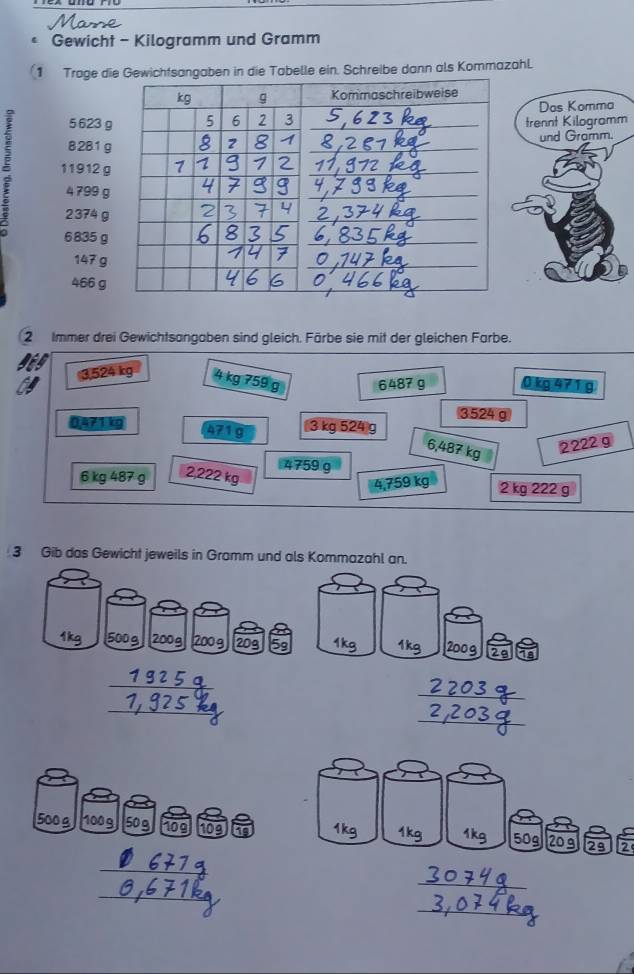 Masse
Gewicht – Kilogramm und Gramm
1 Trage die Gewichtsangaben in die Tabelle ein. Schreibe dann als Kommazahl.
kg g Kommaschreibweise
5623 g 5 6 2 3 5,623 kg
8281 g 8 2 8 1 8,281 kg
11912 g 1 1 9 1 2 11,912 kg
4799 g 4 7 9 9 4,799 kg
2374 g 2 3 7 4 2,374 kg
6835 g 6 8 3 5 6,835 kg
147 g 1 4 7 0,147 kg
466 g 4 6 6 0,466 kg
Das Komma
trennt Kilogramm
und Gramm.
© Diesterweg, Braunschweig
2 Immer drei Gewichtsangaben sind gleich. Färbe sie mit der gleichen Farbe.
3,524 kg 4 kg 759 g 6487 g 0 kg 471 g
0,471 kg 471 g 3 kg 524 g 3524 g
6,487 kg 2222 g
6 kg 487 g 2,222 kg 4759 g 4,759 kg 2 kg 222 g
3 Gib das Gewicht jeweils in Gramm und als Kommazahl an.
1kg 500g 200g 200g 20g 5g
1925 g
1,925 kg
1kg 1kg 200g 2g 1g
2203 g
2,203 g
500g 100g 50g 10g 10g 1g
671 g
0,671 kg
1kg 1kg 1kg 50g 20g 2g 2g
3074 g
3,074 kg